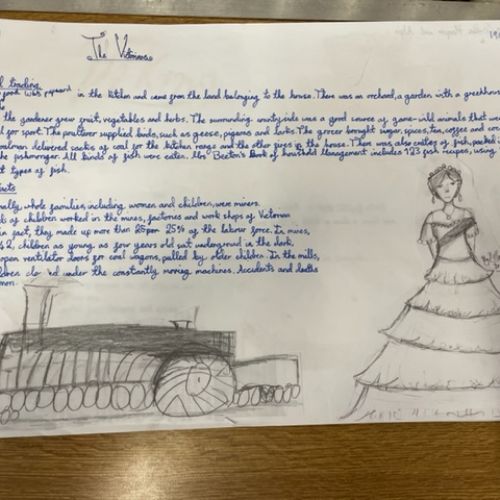 The Victorians
food was prepared in the kitchen and came from the land belonging to the house. There was an orchard, a garden with a greenhouse
the gardener grew fruit, vegetables and herbs. The surrounding countryside was a good source of game-wild animals that were
for sport. The poulterer supplied birds, such as geese, pigeons and larks. The grocer brought sugar, spices, tea, coffee and
coalman delivered sacks of coal for the kitchen range and the other fires in the house. There was also crates of fish, packed in
the fishmonger. All kinds of fish were eaten. Mrs Beeton's Book of Household Management includes 123 fish recipes, using
types of fish.
whole families, including women and children, were miners.
of children worked in the mines, factories and work shops of Victorian
in fact, they made up more than 25% of the labour force. In mines,
children as young as four years old sat underground in the dark,
open ventilator doors for coal wagons, pulled by older children. In the mills,
under the constantly moving machines. Accidents and deaths